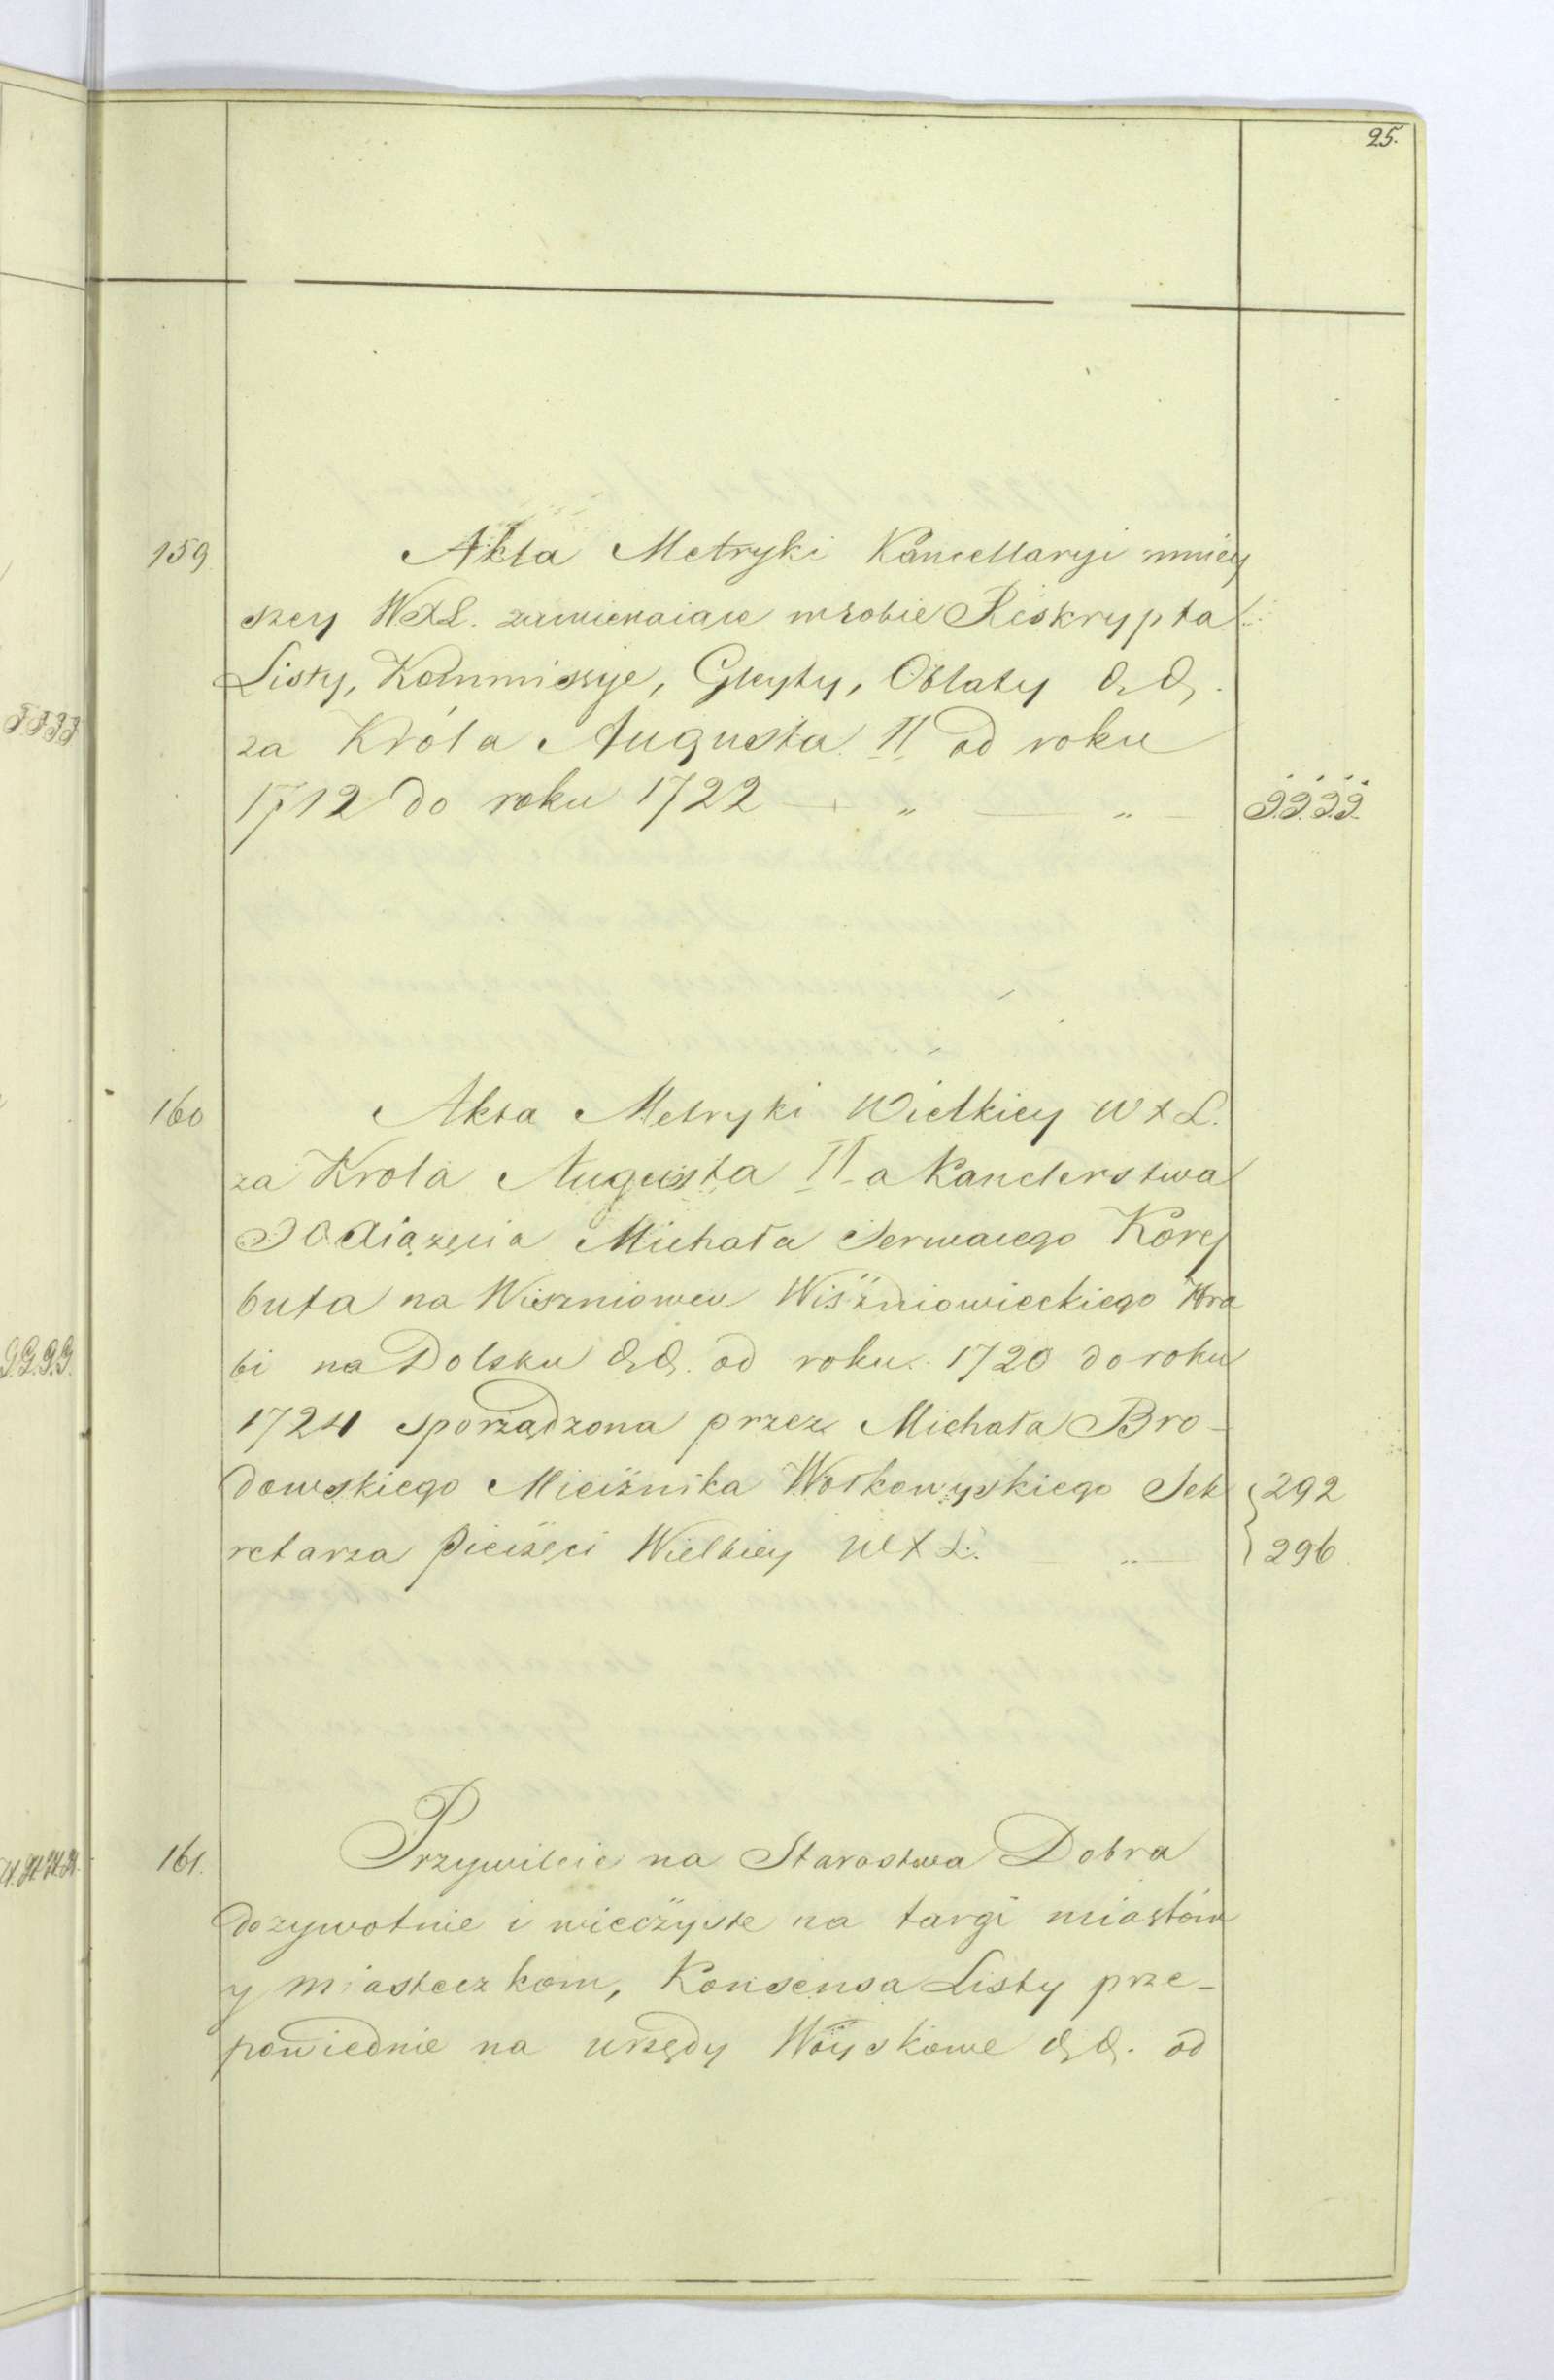 25.
159 Akta Metryki Kancellaryi mniey
szey W.X.L. zawieraiące w sobie Reskrypta
Listy, Kommissye, Gleyty, Oblaty & &.
za Króla Augusta II od roku
1712 do roku 1722 — „ — „ —
160 Akta Metryki Wielkiey W X L.
za Krola Augusta II a Kanclerstwa
Xiążęcia Michała Serwacego Kory
buta na Wiszniowcu Wiszniowieckiego Hra
bi na Dolsku & &. od roku 1720 do roku
1724 sporządzona przez Michała Bro-
dowskiego Miecznika Wołkowyskiego Sek 292
retarza Pieczęci Wielkiey W X L. „ — 296
161. Przywileie na Starostwa Dobra
dozywotnie i wieczyste na targi miastom
y miasteczkom, Konsensa Listy prze-
powiednie na urzędy Woyskowe & &. od